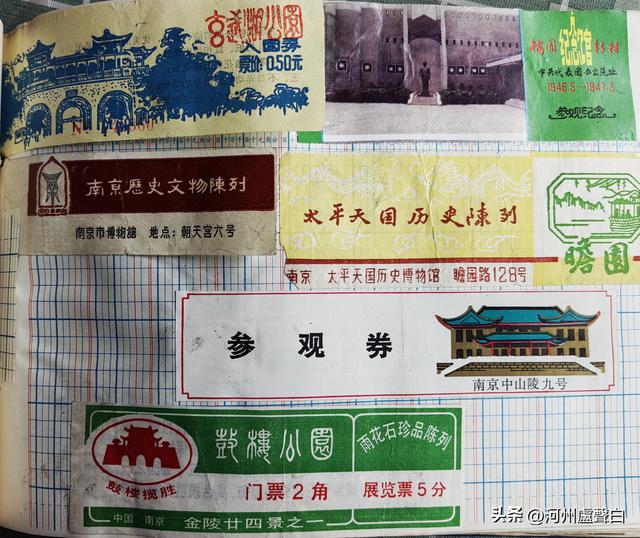 玄武湖公园
入园券
票价0.50元
梅园新村
纪念馆
中共代表团办公原址
1946.5—1947.3
参观纪念
南京歷史文物陳列
南京市博物館 地点：朝天宫六号
太平天国历史陳列
瞻園
南京 太平天国历史博物馆 瞻园路128号
参观券
南京中山陵九号
鼓樓公園
雨花石珍品陈列
鼓楼揽胜
门票2角 展览票5分
中国 南京 金陵廿四景之一
头条 @河州盧聲白